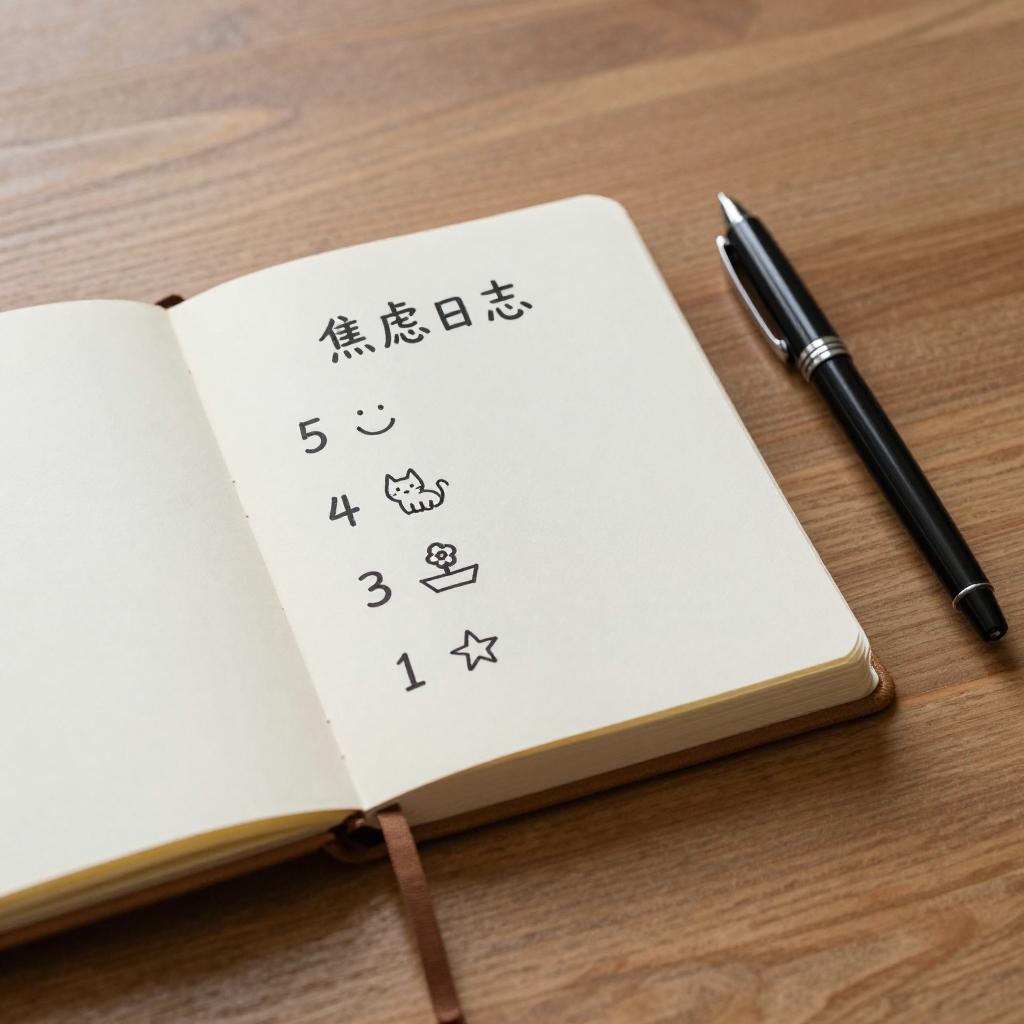 焦虑日志
5
4
3
1